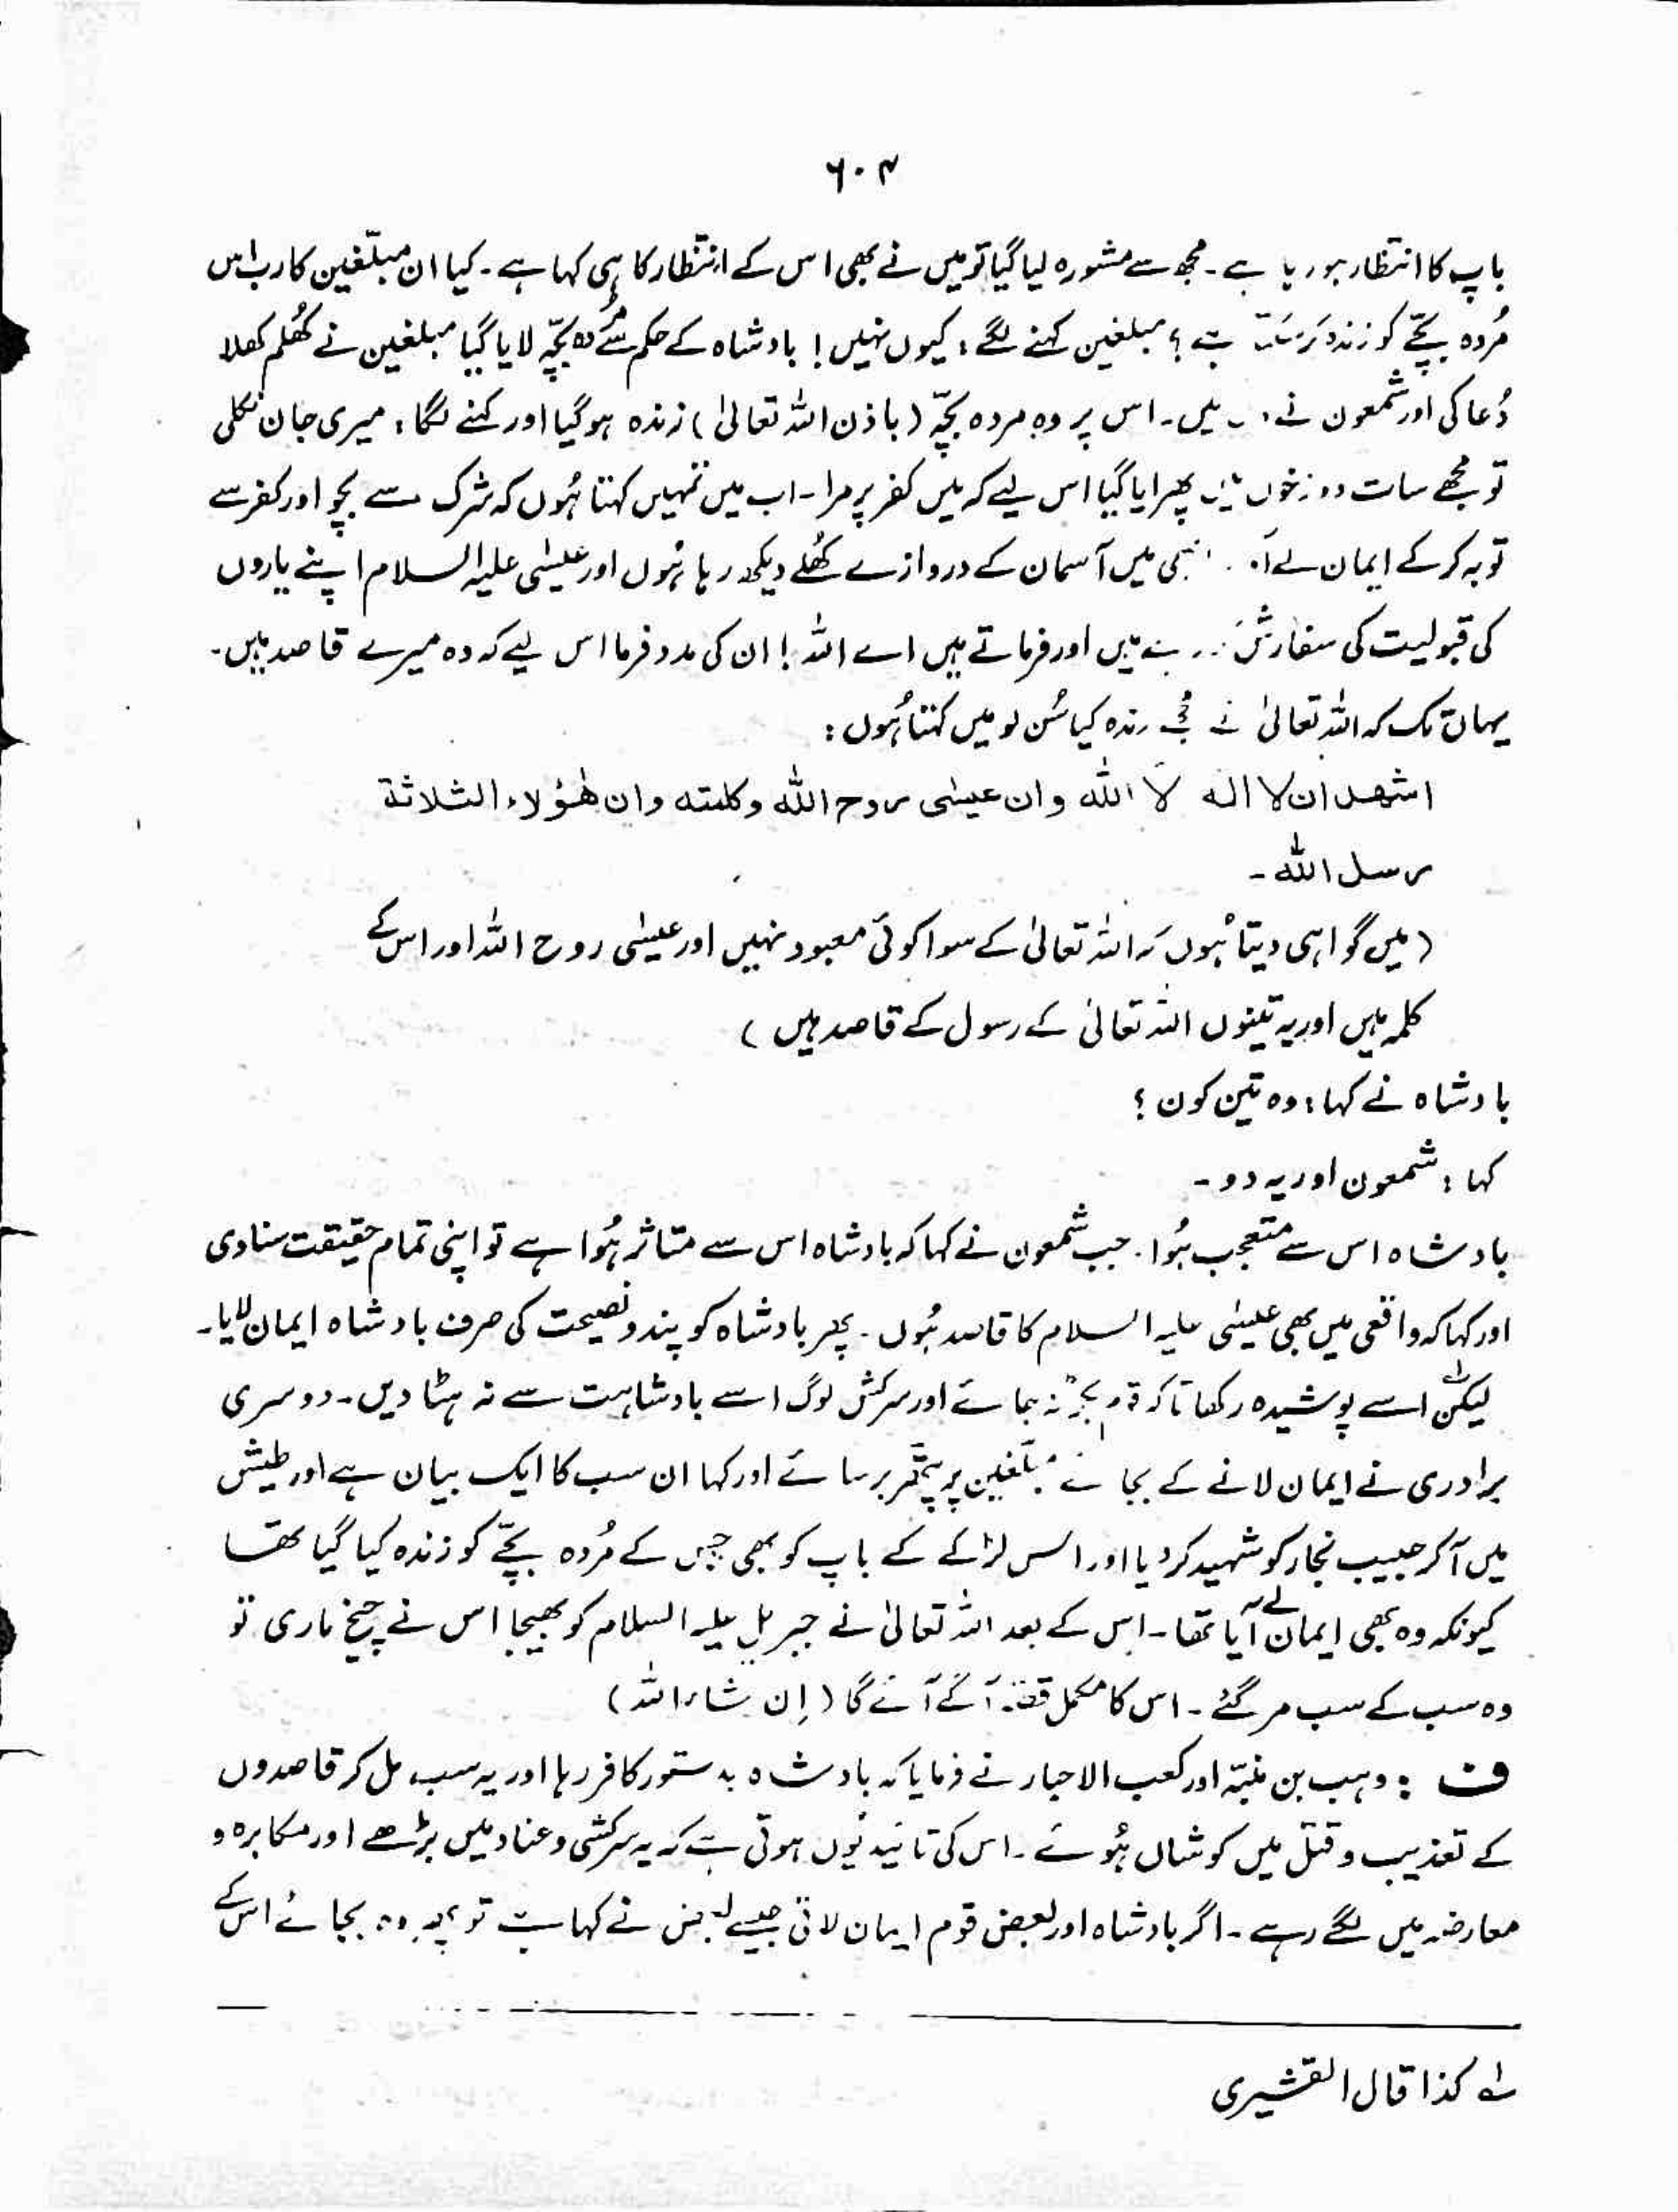 ۶۰۴
باپ کا انتظار ہو رہا ہے۔ مجھ سے مشورہ لیا گیا تو میں نے بھی اس کے انتظار کا ہی کہا ہے۔ کیا ان مبلّغین کا رب اس
مُردہ بچّے کو زندہ ہے؟ مبلغین کہنے لگے: کیوں نہیں! بادشاہ کے حکم سے مُردہ بچّہ لایا گیا مبلغین نے کھُلم کھلا
دُعا کی اور شمعون نے میں۔ اس پر وہ مردہ بچّہ (باذن اللہ تعالیٰ) زندہ ہو گیا اور کہنے لگا: میری جان نکلی
تو مجھے سات دوزخوں میں پھرایا گیا اس لیے کہ میں کفر پر مرا۔ اب میں تمہیں کہتا ہُوں کہ شرک سے بچو اور کفر سے
توبہ کر کے ایمان لے آؤ۔ میں آسمان کے دروازے کھُلے دیکھ رہا ہُوں اور عیسٰی علیہ السلام اپنے یاروں
کی قبولیت کی سفارش رہے ہیں اور فرماتے ہیں اے اللہ! ان کی مدد فرما اس لیے کہ وہ میرے قاصد ہیں۔
یہاں تک کہ اللہ تعالیٰ نے مجھے زندہ کیا سُن لو میں کہتا ہُوں:
اشھد ان لا الٰہ الا اللہ وان عیسٰی روح اللہ وکلمتہ وان ھٰؤلاء الثلاثۃ
رسل اللہ۔
(میں گواہی دیتا ہُوں کہ اللہ تعالیٰ کے سوا کوئی معبود نہیں اور عیسٰی روح اللہ اور اس کے
کلمہ ہیں اور یہ تینوں اللہ تعالیٰ کے رسول کے قاصد ہیں)
بادشاہ نے کہا: وہ تین کون؟
کہا: شمعون اور یہ دو۔
بادشاہ اس سے متعجب ہُوا۔ جب شمعون نے کہا کہ بادشاہ اس سے متاثر ہُوا ہے تو اپنی تمام حقیقت سنا دی
اور کہا کہ واقعی میں بھی عیسٰی علیہ السلام کا قاصد ہُوں۔ پھر بادشاہ کو پند و نصیحت کی صرف بادشاہ ایمان لایا۔
لیکن اسے پوشیدہ رکھا تاکہ قوم بگڑ نہ جائے اور سرکش لوگ اسے بادشاہت سے نہ ہٹا دیں۔ دوسری
برادری نے ایمان لانے کے بجائے مبلّغین پر پتھر برسائے اور کہا ان سب کا ایک بیان ہے اور طیش
میں آ کر حبیب نجار کو شہید کر دیا اور اس لڑکے کے باپ کو بھی جس کے مُردہ بچّے کو زندہ کیا گیا تھا
کیونکہ وہ بھی ایمان لے آیا تھا۔ اس کے بعد اللہ تعالیٰ نے جبریل علیہ السلام کو بھیجا اس نے چیخ ماری تو
وہ سب کے سب مر گئے۔ اس کا مکمل قصّہ آگے آئے گا (اِن شاء اللہ)
ف : وہب بن منبّہ اور کعب الاحبار نے فرمایا کہ بادشاہ بدستور کافر رہا اور یہ سب مل کر قاصدوں
کے تعذیب و قتل میں کوشاں ہُوئے۔ اس کی تائید یُوں ہوتی ہے کہ یہ سرکشی و عناد میں بڑھے اور مکابرہ و
معارضہ میں لگے رہے۔ اگر بادشاہ اور بعض قوم ایمان لاتی جیسے بعض نے کہا ہے تو پھر وہ بجائے اس کے
لے کذا قال القشیری